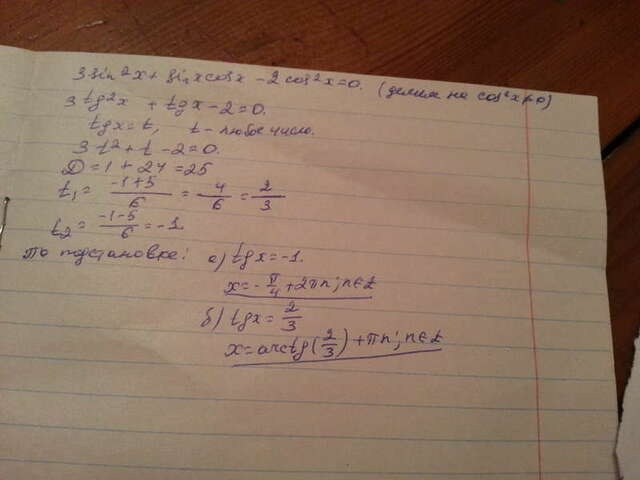 3 sin²x + sinxcosx - 2 cos²x = 0. (делим на cos²x≠0)
3 tg²x + tgx - 2 = 0.
tgx = t, t - любое число.
3 t² + t - 2 = 0.
D = 1 + 24 = 25
t₁ = (-1+5)/6 = 4/6 = 2/3
t₂ = (-1-5)/6 = -1.
По подстановке: а) tgx = -1.
x = -π/4 + 2πn; n∈Z
б) tgx = 2/3
x = arctg(2/3) + πn; n∈Z